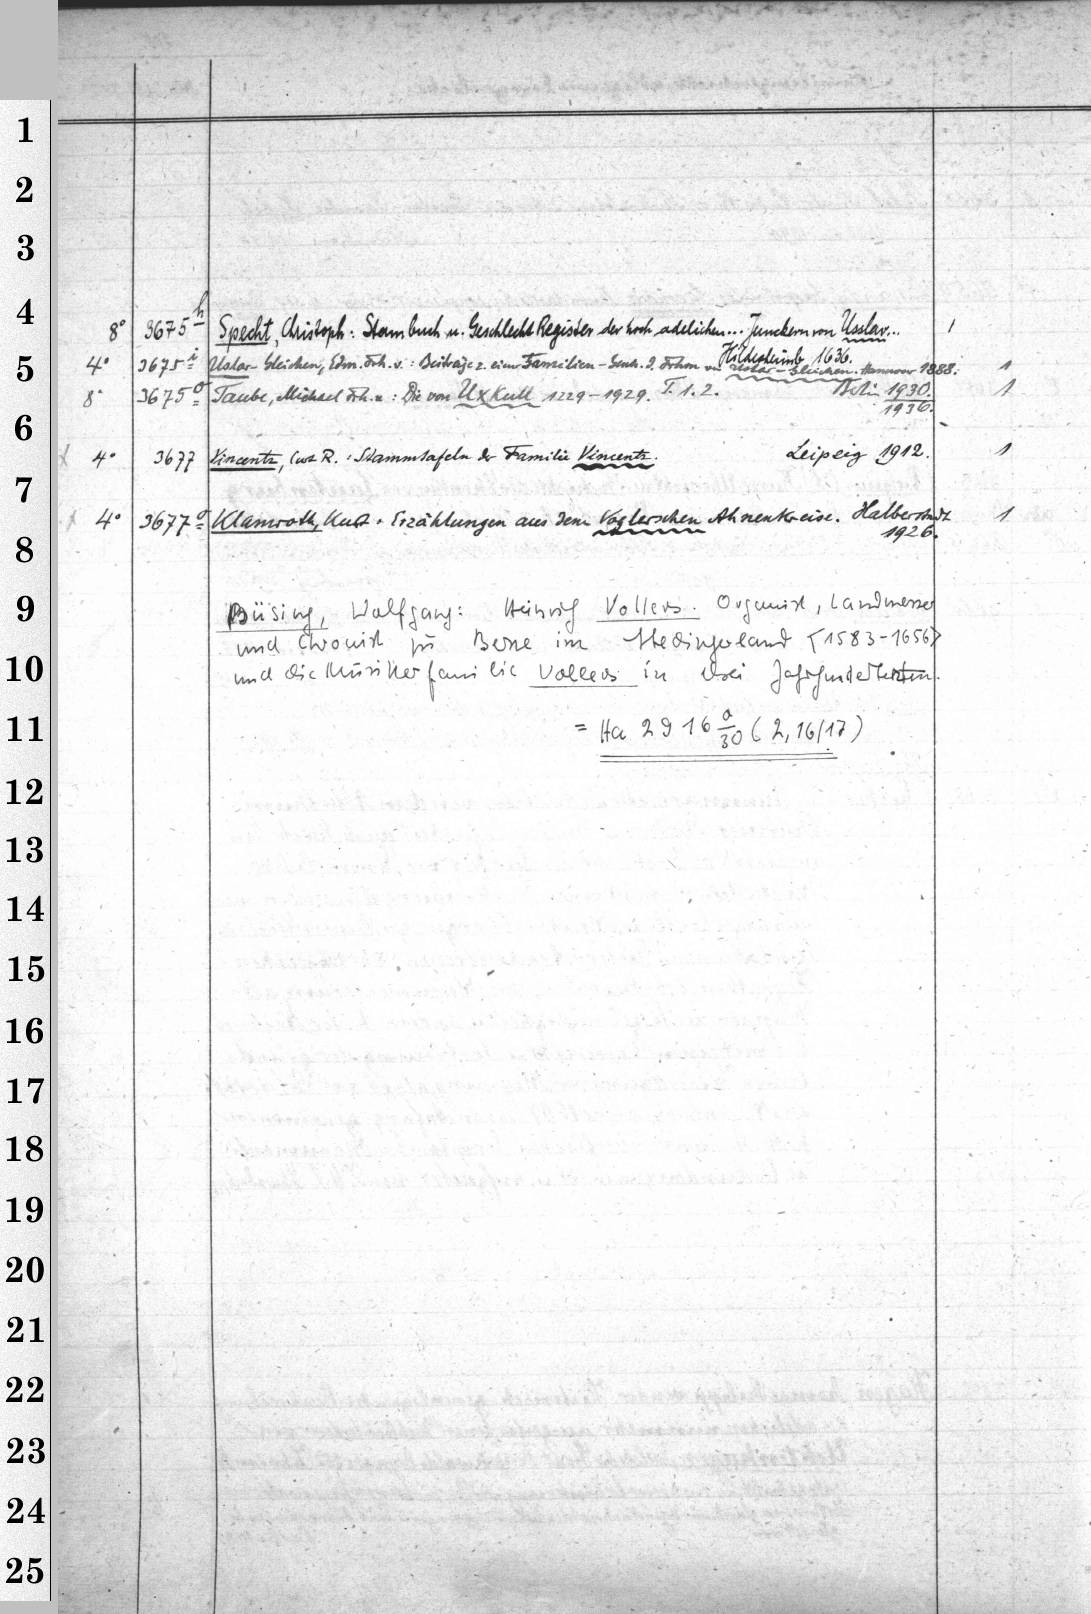 1
2
3
4
8° 3675 h Specht, Christoph: Stambuch u. Geschlecht Register der hoch adelichen... Junckern von Usslav... 1
Hildesheimb 1636.
5
4° 3675 i Uslar-Gleichen, Edm. Frh. v.: Beiträge z. einer Familien-Gesch. d. Frhrn von Uslar-Gleichen. Hannover 1888. 1
8° 3675 a Taube, Michael Frh. v.: Die von Uxkull 1229-1929. T. 1. 2. Berlin 1930. 1
1936.
6
4° 3677 Vincentz, Curt R.: Stammtafeln der Familie Vincentz. Leipzig 1912. 1
7
4° 3677 a Klamroth, Kurt: Erzählungen aus dem Voglerschen Ahnenkreise. Halberstadt 1
1926.
8
9
Büsing, Wolfgang: Heinrich Vollers. Organist, Landmesser
und Chronist zu Berne im Stedingerland (1583-1656)
10
und die Musikerfamilie Vollers in drei Jahrhunderten.
11
= Ha 2916 a/30 (2,16/17)
12
13
14
15
16
17
18
19
20
21
22
23
24
25